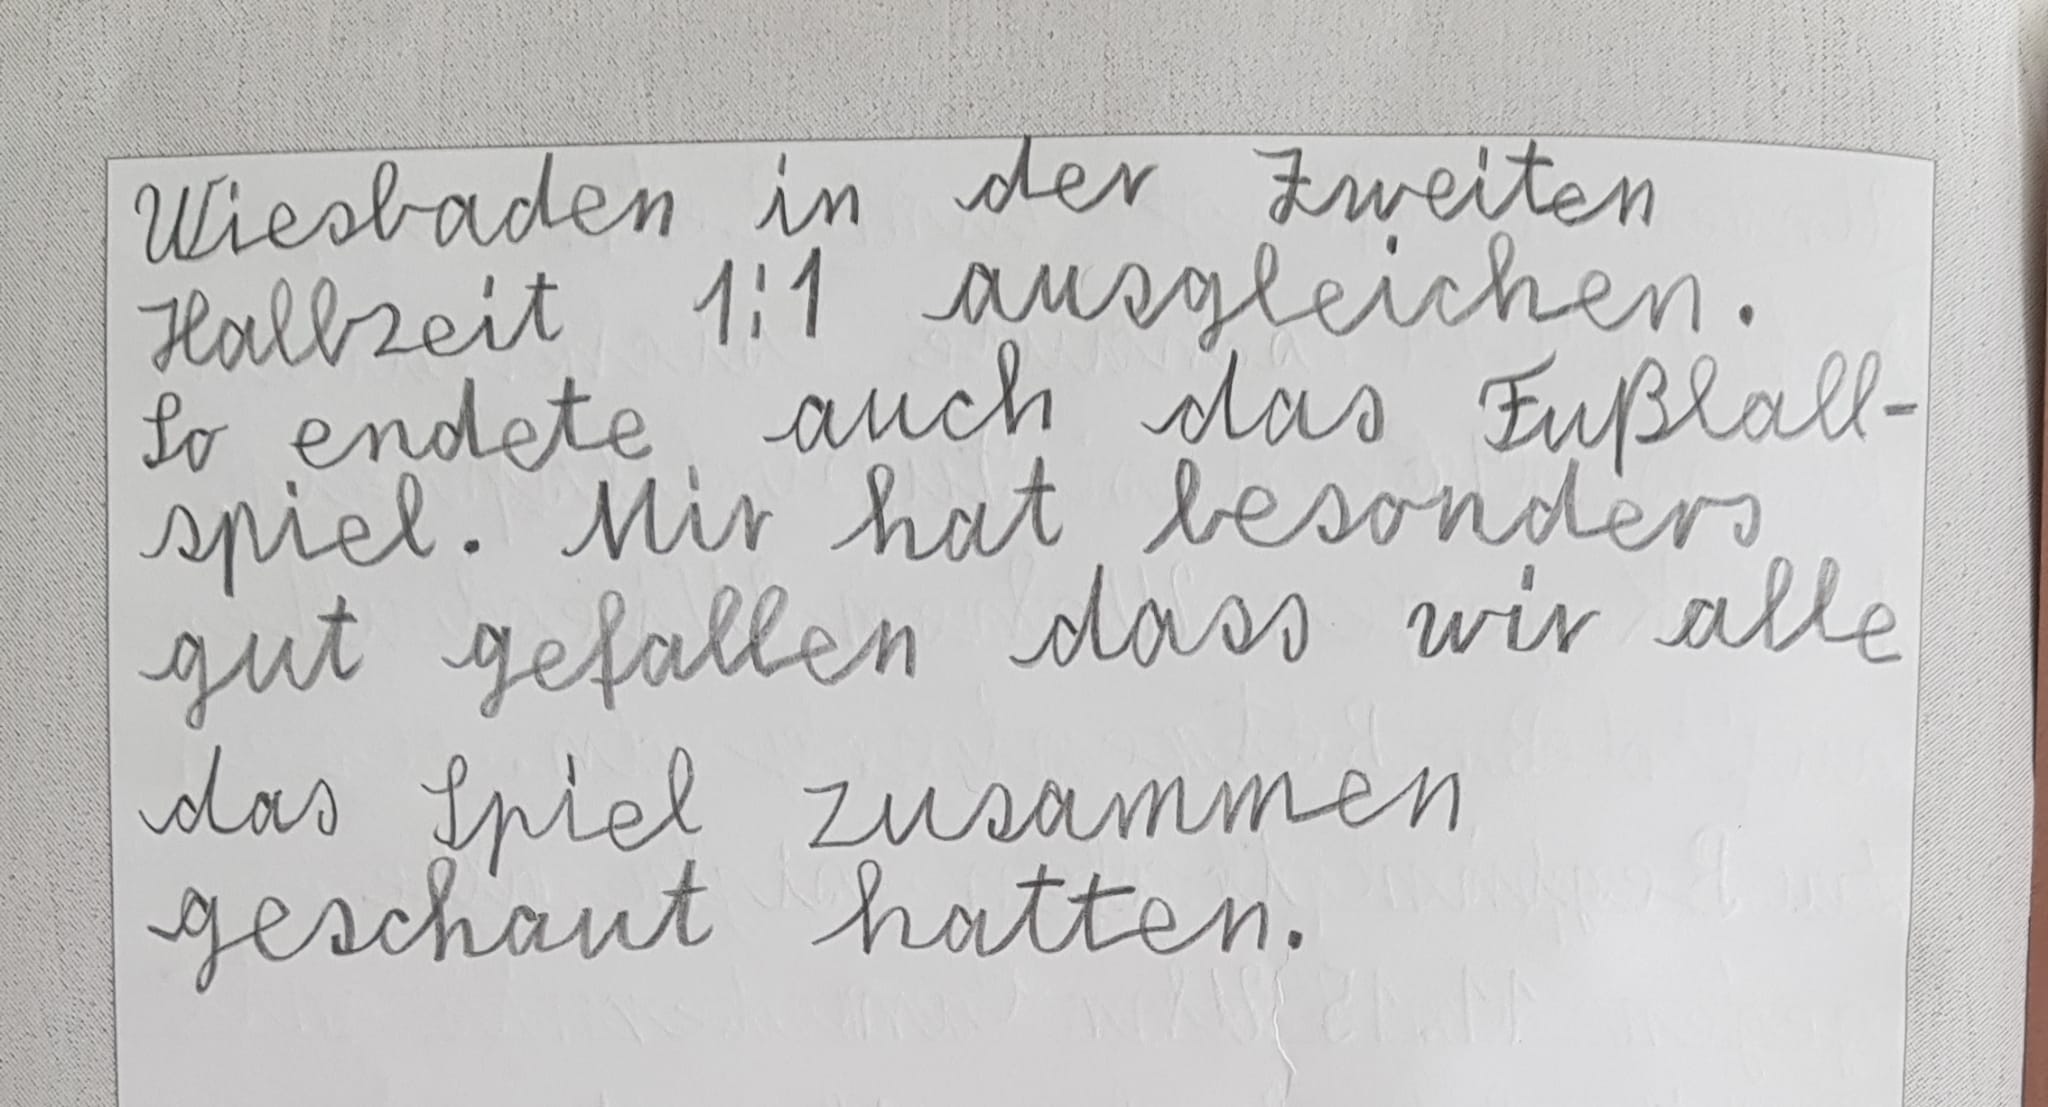 Wiesbaden in der Zweiten
Halbzeit 1:1 ausgleichen.
So endete auch das Fußball-
spiel. Mir hat besonders
gut gefallen dass wir alle
das Spiel zusammen
geschaut hatten.